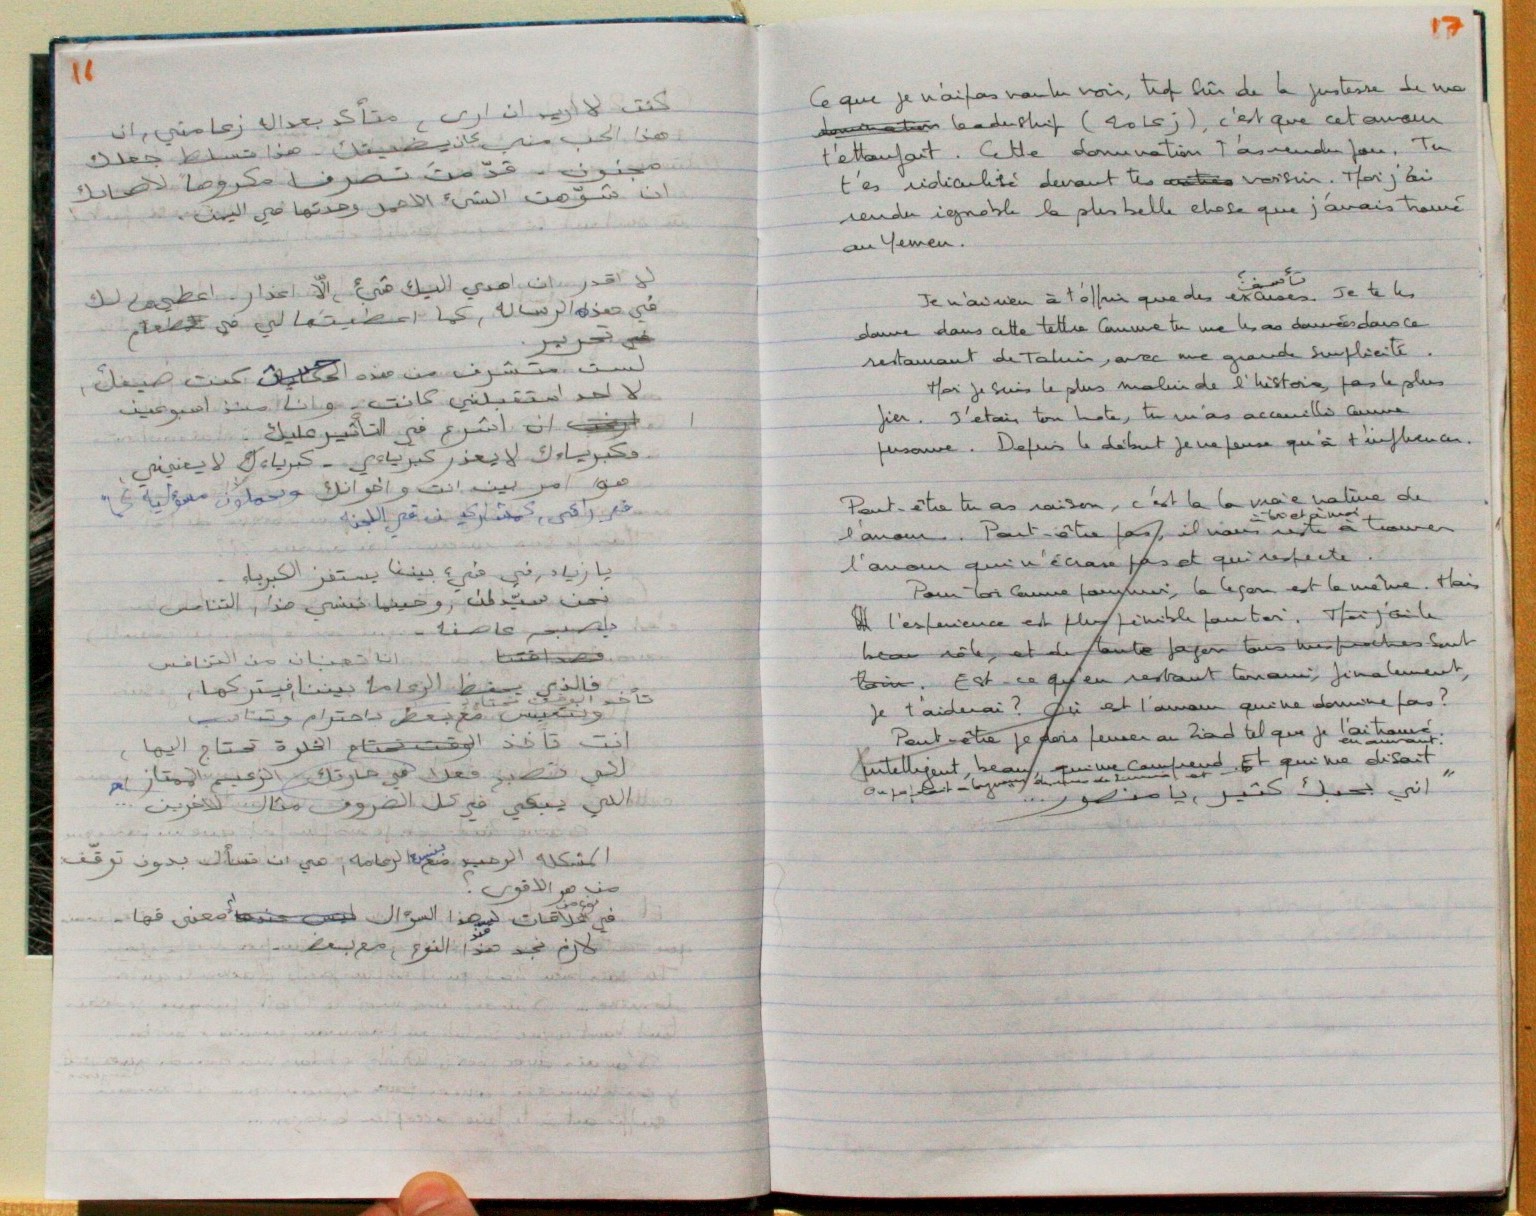 11
كنت لا اريد ان ارى، متأكد بعدالة زعامتي، ان
هذا الحب مني كان يضيقك. هذا تسلط جعلك
مجنون. قدّمت تصرف مكروها لاصحابك
انا شوّهت الشيء الاجمل وجدتها في اليمن.
لا اقدر ان اهدي اليك شيء، الّا اعذار. اعطيها لك
في هذه الرسالة، كما اعطيتها لي في مطعم
تحرير.
لست متشرف من هذه الحكاية كنت ضيفك،
لا احد استقبلني كانت. وانا منذ اسبوعين
ان اشرع في التأثير عليك.
وكبرياءك لا يعذر كبريائي. كبرياءك لا يعنيني،
هو امر بين انت و اخوانك
يا زياد، في شيء بيننا يستفز الكبرياء.
نحن سيّدان، وحينما ننسي هذا، التنافس
يصبح عاصفة.
انا تعبان من التنافس
فالذي يحفظ الزعامة بيننا، فيتركها،
تأخذ الوقت تحتاج
مع بعض باحترام و
انت تأخذ الوقت تحتاج الفترة تحتاج اليها،
لكي تصبح فعلا في حارتك، الزعيم الممتاز
اللي يبقي في كل الظروف مثال للآخرين
المشكلة الوحيد مع الزعامة، هي ان نسأل بدون توقّف
من هو الاقوى؟
في علاقات هذا السؤال ليس عندها معنى فيها.
لازم نجد هذا النوع، مع بعض.
17
Ce que je n'ai pas voulu voir, trop sûr de la justesse de ma
domination leadership (زعامة), c'est que cet amour
t'étouffait. Cette domination t'as rendu fou. Tu
t'es ridiculisé devant tes autres voisin. Moi j'ai
rendu ignoble la plus belle chose que j'avais trouvé
au Yemen.
Je n'ai rien à t'offrir que des excuses. Je te les
donne dans cette lettre comme tu me les as données dans ce
restaurant de Tahrir, avec une grande simplicité.
Moi je suis le plus malin de l'histoire, pas le plus
fier. J'étais ton hote, tu m'as accueilli comme
personne. Depuis le début je ne pense qu'à t'influencer.
Peut-être tu as raison, c'est la la vraie nature de
l'amour. Peut-être pas, il nous reste à trouver
à toi et à moi
l'amour qui n'écrase pas et qui respecte.
Pour toi comme pour moi, la leçon est la même. Mais
l'experience est plus pénible pour toi. Moi j'ai le
beau rôle, et de toute façon tous mes proches sont
loin. Est-ce qu'en restant ton ami, finalement,
je t'aiderai? Où est l'amour qui ne domine pas?
Peut-être je dois penser au Ziad tel que je l'ai trouvé
en arrivant.
intelligent, beau, qui me comprend. Et qui me disait
"اني بحبك كثير، يا منصور...